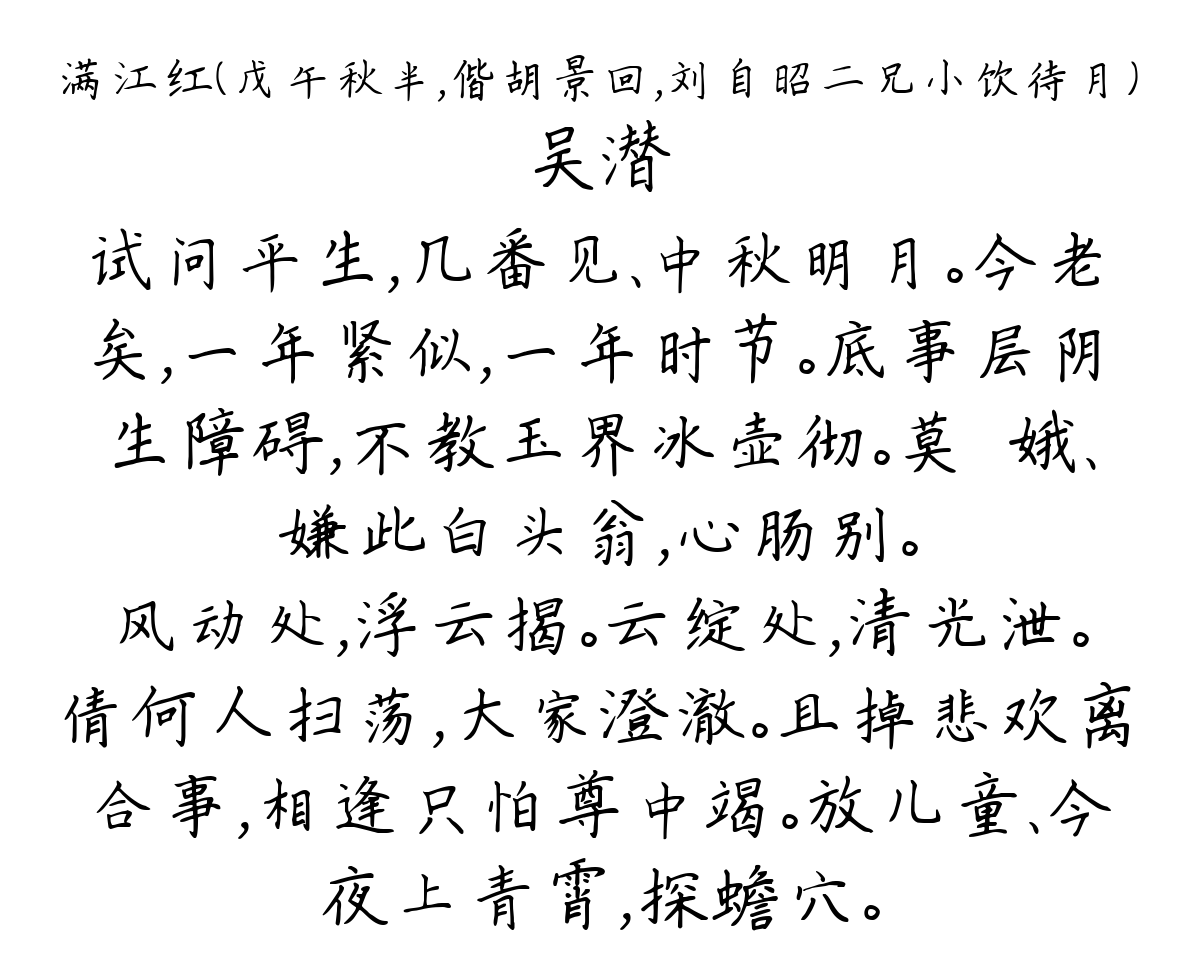 满江红(戊午秋半,偕胡景回,刘自昭二兄小饮待月)
吴潜
试问平生,几番见、中秋明月。今老
矣,一年紧似,一年时节。底事层阴
生障碍,不教玉界冰壶彻。莫 娥、
嫌此白头翁,心肠别。
风动处,浮云揭。云绽处,清光泄。
倩何人扫荡,大家澄澈。且掉悲欢离
合事,相逢只怕尊中竭。放儿童、今
夜上青霄,探蟾穴。